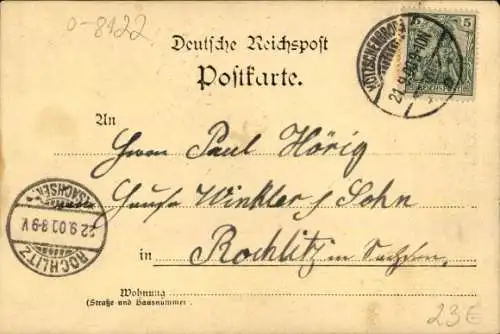 0-8122
Deutsche Reichspost
Postkarte.
KÖTZSCHENBRODA
21.9.00.9-10N
5
REICHSPOST
An
Herrn Paul Hörig
Hause Winkler & Sohn
in Rochlitz in Sachsen.
ROCHLITZ
22.9.00.8-9V
(SACHSEN)
Wohnung
(Straße und Hausnummer)
23€